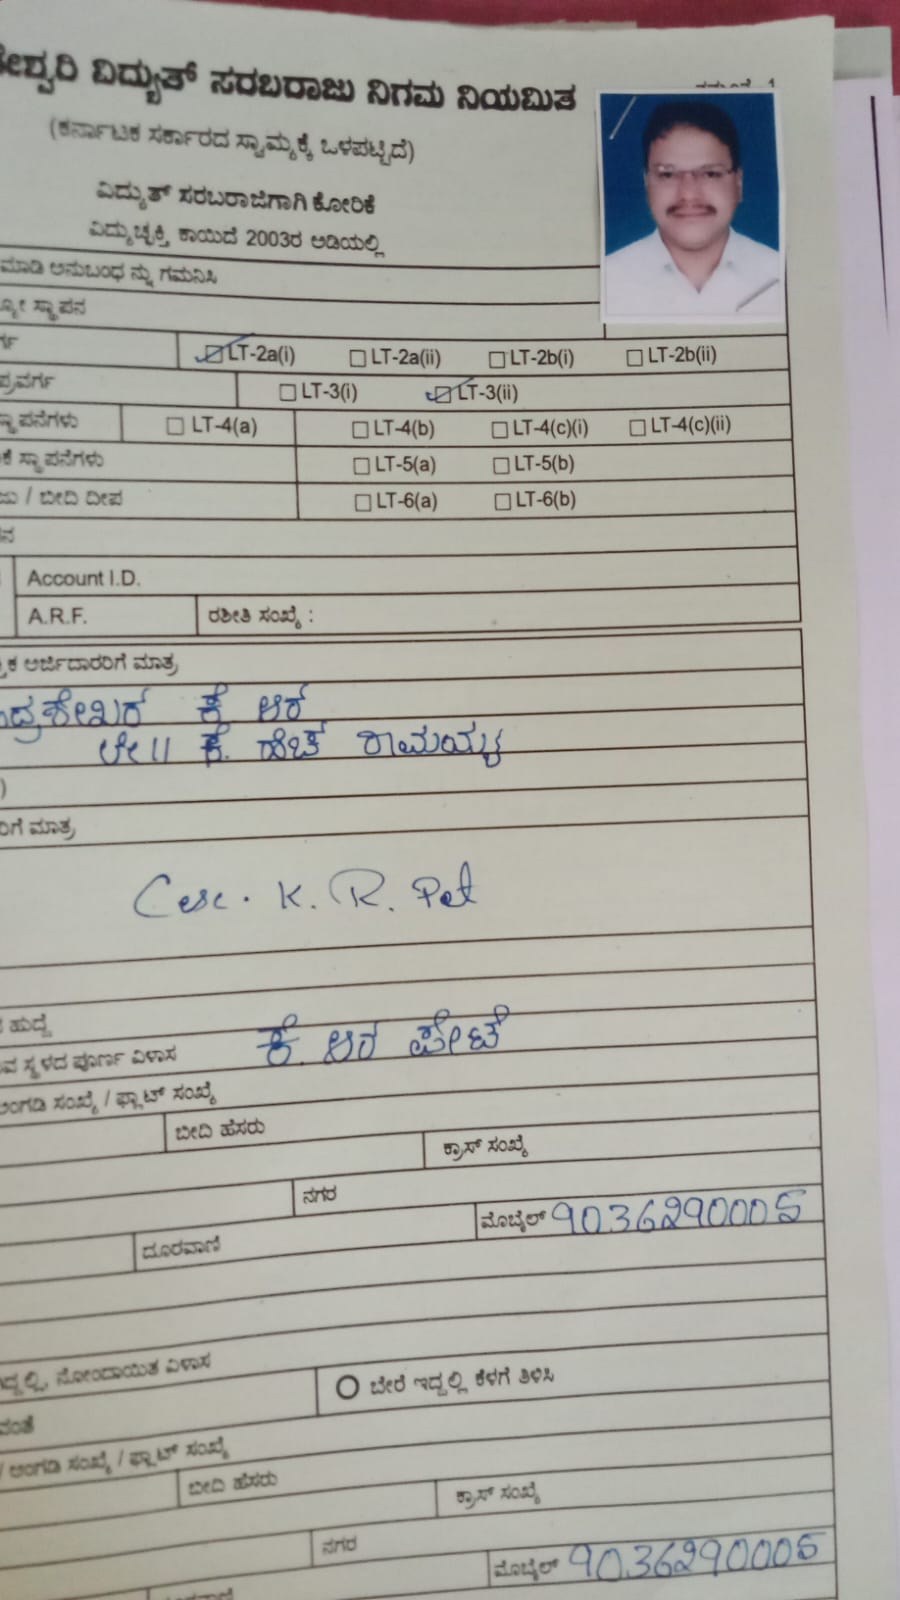 ೇಶ್ವರಿ ವಿದ್ಯುತ್ ಸರಬರಾಜು ನಿಗಮ ನಿಯಮಿತ
(ಕರ್ನಾಟಕ ಸರ್ಕಾರದ ಸ್ವಾಮ್ಯಕ್ಕೆ ಒಳಪಟ್ಟಿದೆ)
ವಿದ್ಯುತ್ ಸರಬರಾಜಿಗಾಗಿ ಕೋರಿಕೆ
ವಿದ್ಯುಚ್ಛಕ್ತಿ ಕಾಯಿದೆ 2003ರ ಅಡಿಯಲ್ಲಿ
ಮಾಡಿ ಅನುಬಂಧ ನ್ನು ಗಮನಿಸಿ
ಸ್ಥಾಪನ
LT-2a(i) LT-2a(ii) LT-2b(i) LT-2b(ii)
ಪ್ರವರ್ಗ LT-3(i) LT-3(ii)
ಸ್ಥಾಪನೆಗಳು LT-4(a) LT-4(b) LT-4(c)(i) LT-4(c)(ii)
ಕೆ ಸ್ಥಾಪನೆಗಳು LT-5(a) LT-5(b)
/ ಬೀದಿ ದೀಪ LT-6(a) LT-6(b)
Account I.D.
A.R.F. ರಶೀತಿ ಸಂಖ್ಯೆ :
ಕ ಅರ್ಜಿದಾರರಿಗೆ ಮಾತ್ರ
ದ್ರಶೇಖರ್ ಕೆ ಆರ್
ಲೇ|| ಕೆ. ಹೆಚ್ ರಾಮಯ್ಯ
)
ರಿಗೆ ಮಾತ್ರ
Cesc. K. R. Pet
ಹುದ್ದೆ
ಸ್ಥಳದ ಪೂರ್ಣ ವಿಳಾಸ ಕೆ. ಆರ್ ಪೇಟೆ
ಅಂಗಡಿ ಸಂಖ್ಯೆ / ಫ್ಲಾಟ್ ಸಂಖ್ಯೆ
ಬೀದಿ ಹೆಸರು
ಕ್ರಾಸ್ ಸಂಖ್ಯೆ
ನಗರ
ದೂರವಾಣಿ ಮೊಬೈಲ್ 9036290005
ದ್ದಲ್ಲಿ, ನೋಂದಾಯಿತ ವಿಳಾಸ
ಬೇರೆ ಇದ್ದಲ್ಲಿ ಕೆಳಗೆ ತಿಳಿಸಿ
ವಂತೆ
/ ಅಂಗಡಿ ಸಂಖ್ಯೆ / ಫ್ಲಾಟ್ ಸಂಖ್ಯೆ
ಬೀದಿ ಹೆಸರು
ಕ್ರಾಸ್ ಸಂಖ್ಯೆ
ನಗರ
ಮೊಬೈಲ್ 9036290005